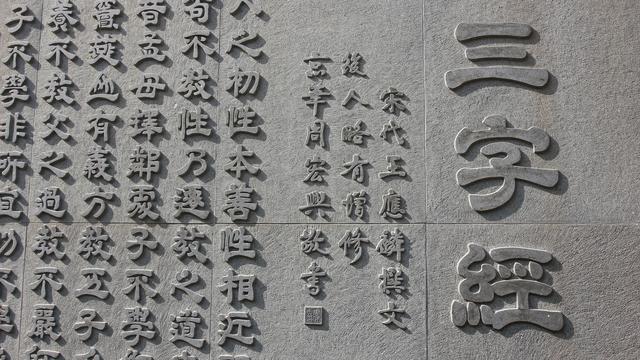 三字經
宋代王應麟撰文
後人略有增修
京華周宏興敬書
人之初性本善性相近
苟不教性乃遷教之道
昔孟母擇鄰處子不學
竇燕山有義方教五子
養不教父之過教不嚴
子不學非所宜幼不學